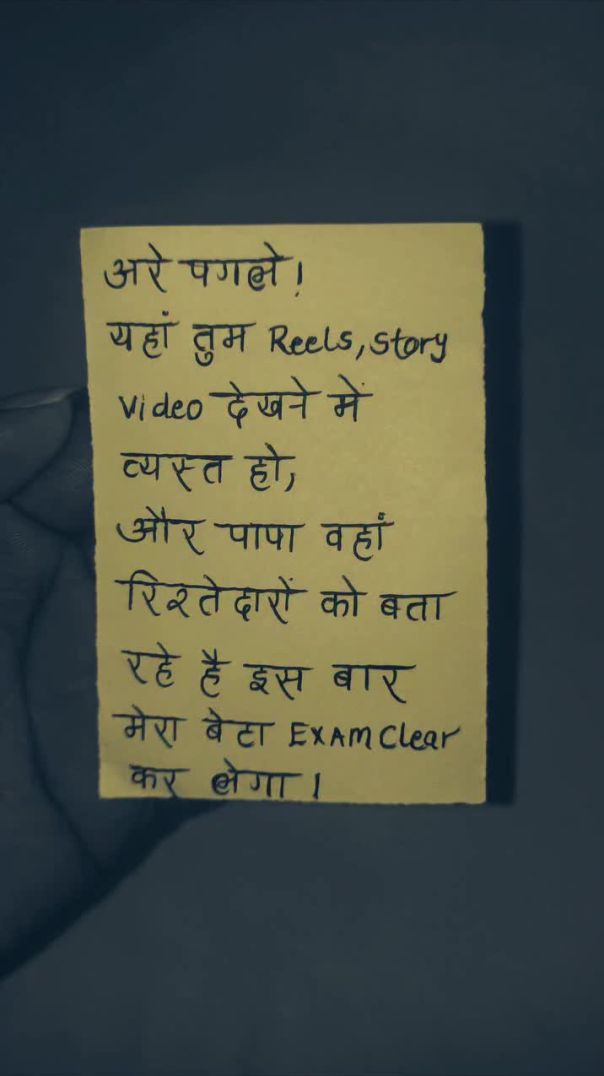 अरे पगले!
यहां तुम Reels, Story
Video देखने में
व्यस्त हो,
और पापा वहां
रिश्तेदारों को बता
रहे है इस बार
मेरा बेटा EXAM Clear
कर लेगा।